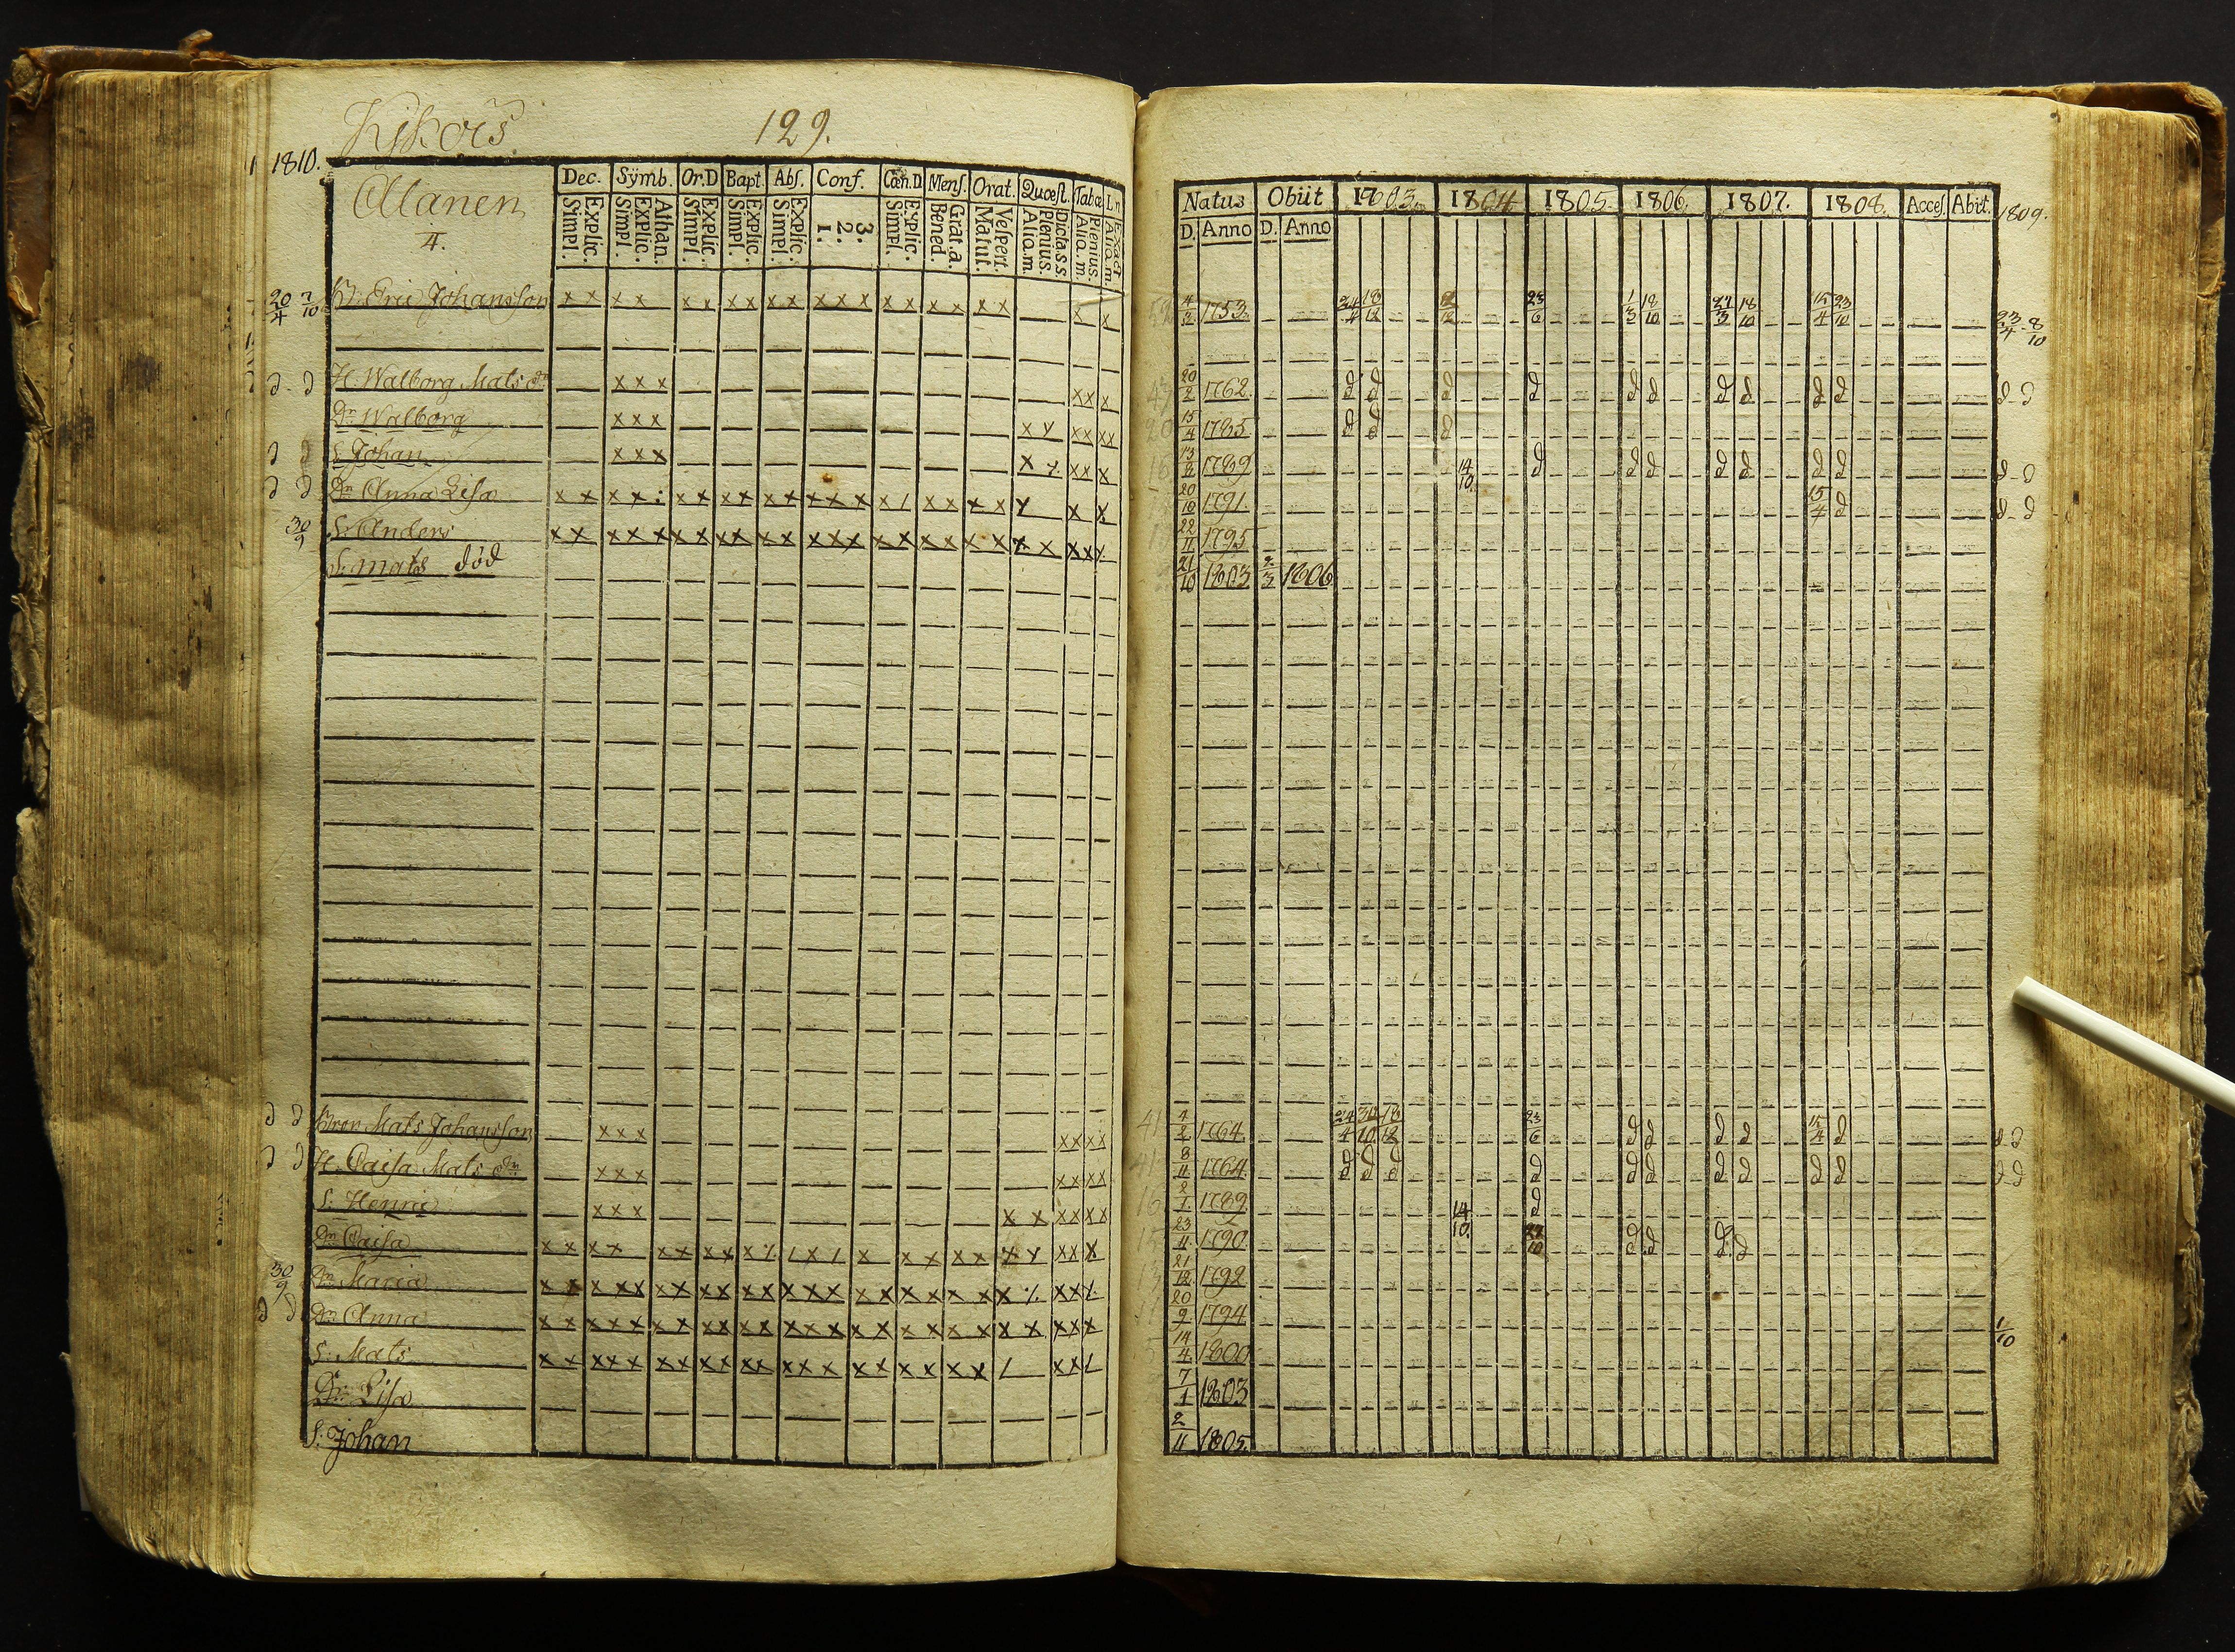 Kjkois 129.
1810.
Alanen
4.
Dec. Sÿmb. Or.D Bapt. Abſ. Conf. Cœn.D Menſ. Orat. Quœſt. Tabœ
Simpl. Explic. Simpl. Explic. Athan. Simpl. Explic. Simpl. Explic. Simpl. Explic. 1. 2. 3. Simpl. Explic. Bened. Grat.a. Matut. Veſpert. Alia.m. Plenius. Alia.m. Plenius. Exact
20/4 7/10 B. Eric Johansson x x x x x x x x x x x x x x x x x x x x x
d d H. Walborg Mats dr x x x x x x
Dr Walborg x x x x y x x x x
d d S. Johan x x x x x x x
d d Dr Anna Lisa x x x x : x x x x x x x x x x / x x x x y x x
30/9 S. Anders x x x x x x x x x x x x x x x x x x x x x x x x x
S. mats död
d d Bror Mats Johansson x x x x x x x
d d H. Caisa Mats dr x x x x x x x
S. Henric x x x x x x x x x
Dr Caisa x x x x x x x x x / x / x x x x x x y x x x
30/9 Dr Maria x x x x x x x x x x x x x x x x x x x x x x x
d d Dr Anna x x x x x x x x x x x x x x x x x x x x x x x x x
S. Mats x x x x x x x x x x x x x x x x x x x x / x x /
Dr Lisa
S. Johan
Natus Obiit 1803. 1804 1805. 1806. 1807. 1808. Acceſ. Abiit. 1809.
D. Anno D. Anno
4/2 1753. 24/4 18/12 23/6 1/3 18/10 27/3 18/10 15/4 23/10 23/4 - 8/10
20/2 1762. d d d d d d d d d d d - d
15/4 1785 d d d
13/2 1789 14/10 d d d d d d d d - d
20/10 1791. 15/4 d d - d
22/11 1795
21/10 1803 2/3 1806
41 4/2 1764. 24/4 18/12 23/6 d d d d 15/4 d d d
41 8/11 1764. d d d d d d d d d d d - d
16 2/1 1789 14/10. d
23/11 1790 d d d d
21/12 1792
20/9 1794 1/10
14/4 1800
7/1 1803
2/11 1805.